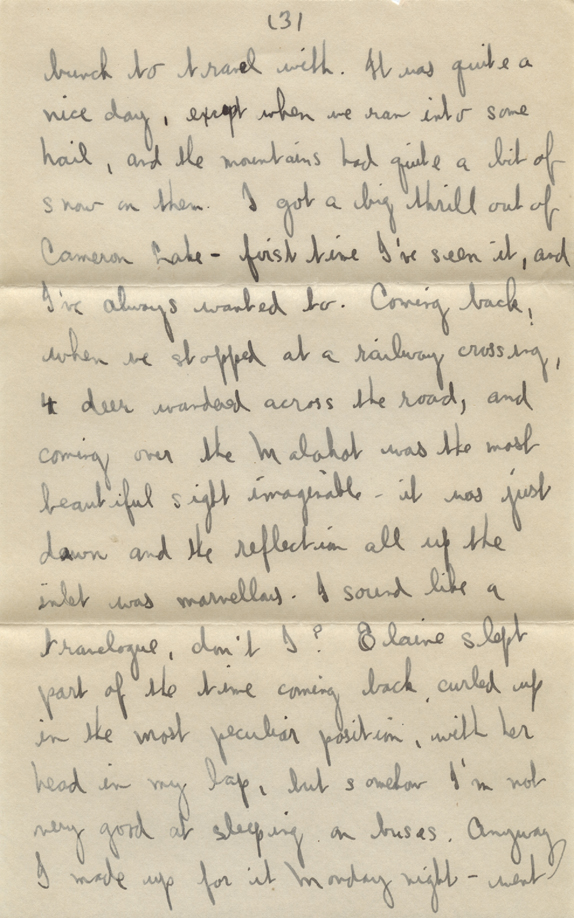 (3)
bunch to travel with. It was quite a
nice day, except when we ran into some
hail, and the mountains had quite a bit of
snow on them. I got a big thrill out of
Cameron Lake - first time I've seen it, and
I've always wanted to. Coming back,
when we stopped at a railway crossing,
4 deer wandered across the road, and
coming over the Malahat was the most
beautiful sight imaginable - it was just
dawn and the reflection all up the
inlet was marvellous. I sound like a
travelogue, don't I? Elaine slept
part of the time coming back, curled up
in the most peculiar position, with her
head in my lap, but somehow I'm not
very good at sleeping on buses. Anyway
I made up for it Monday night - went